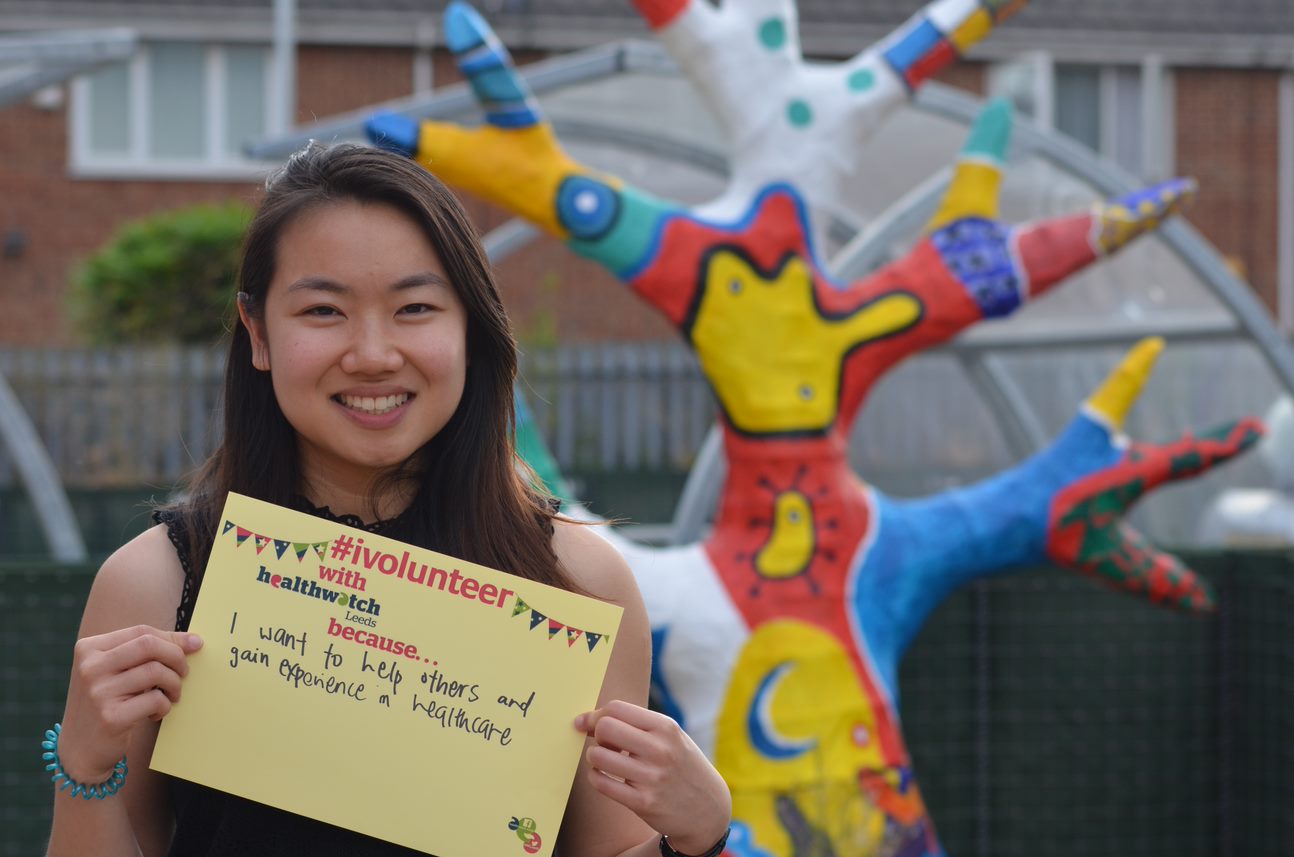 #ivolunteer
with
healthwatch
Leeds
because...
I want to help others and
gain experience in healthcare